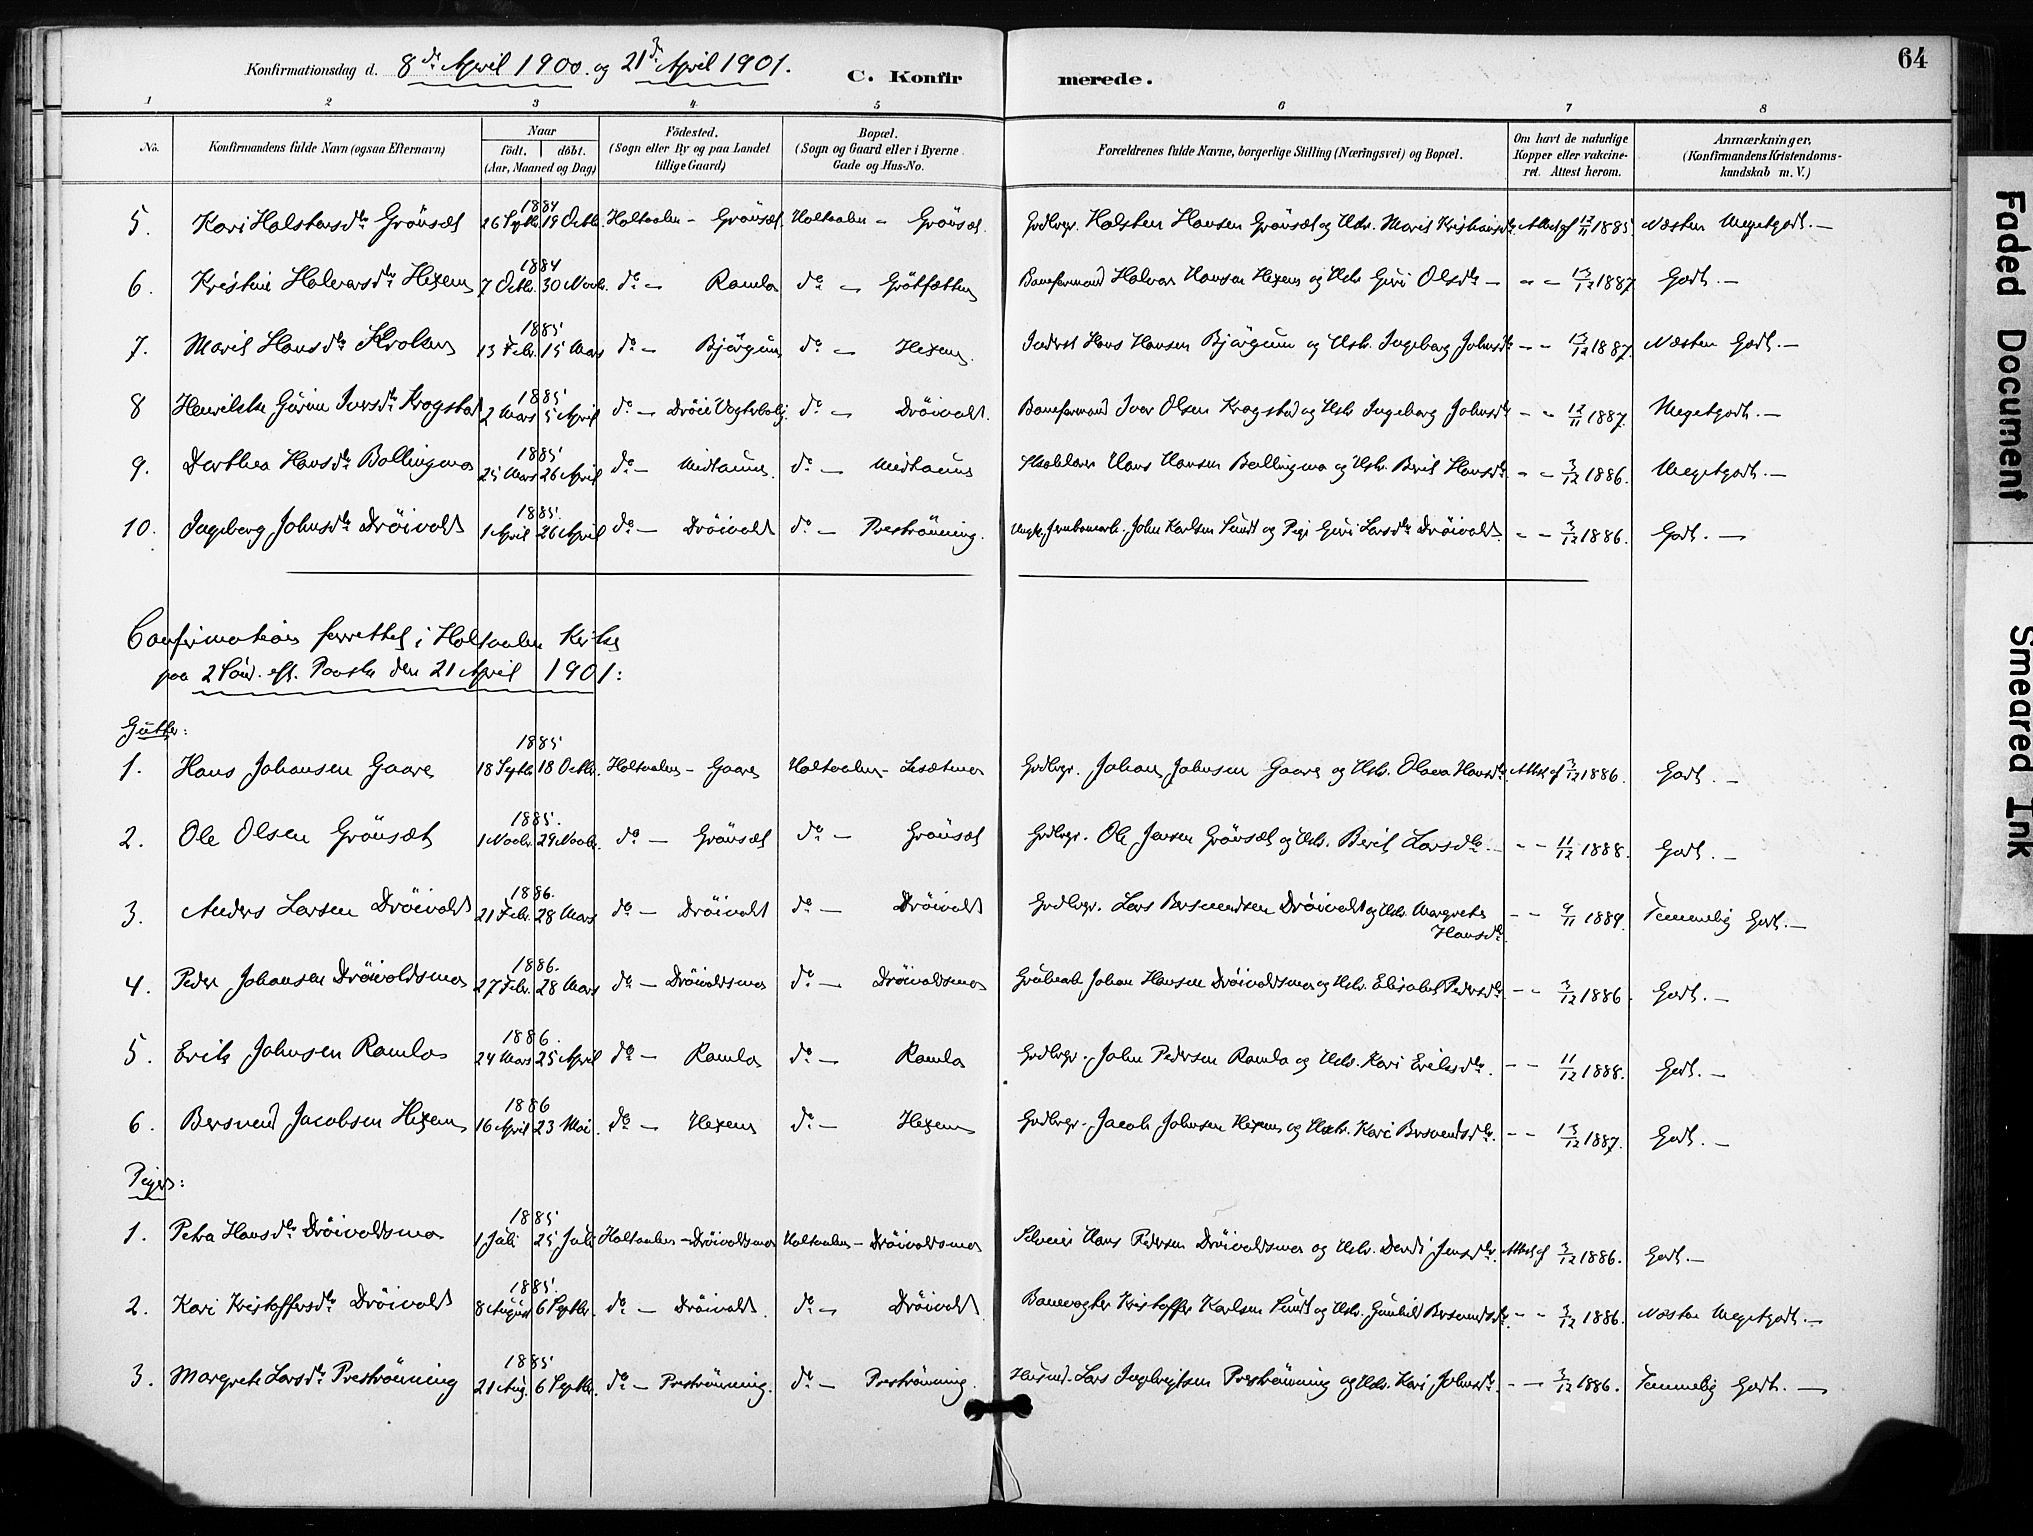 Konfirmationsdag d. 8de April 1900. og 21de April 1901. C. Konfirmerede. 64
1 2 3 4 5 6 7 8
No. Konfirmandens fulde Navn (ogsaa Efternavn) Naar födt. döbt. (Aar, Maaned og Dag) Födested. (Sogn eller By og paa Landet tillige Gaard) Bopæl. (Sogn og Gaard eller i Byerne Gade og Hus-No. Forældrenes fulde Navne, borgerlige Stilling (Næringsvei) og Bopæl. Om havt de naturlige Kopper eller vakcineret. Attest herom. Anmærkninger, (Konfirmandens Kristendomskundskab m. V.)
5. Kari Halstensdtr Grönsæt 1884 26 Septbr. 19 Octbr. Holtaalen - Grönsæt. Holtaalen - Grönsæt. Grdbrgr. Halsten Hansen Grönsæt og Hstr. Marit Attest af 12/11 1885. Næsten Megetgodt. -
6. Kristine Halvarsdtr Hexem 1884 7 Octbr. 30 Novbr. do - Ramlo do - Grötfætten Baneformand Halvar Hansen Hexem og Hstr. Guri Olsdtr - - - 13/12 1887 Godt. -
7. Marit Hansdtr Kroken 1885 13 Febr. 15 Mars do - Bjørgum do - Hexem. Inderst Hans Hansen Bjørgum og Hstr. Ingeborg Johnsdtr - - 13/12 1887. Næsten Godt. -
8 Henrikke Gurine Iversdtr Krogstad 1885 2 Mars 5 April do - Dröi Vogterbolig do - Dröivold. Baneformand Iver Olsen Krogstad og Hstr. Ingeborg Johnsdtr - - 12/11 1887. Megetgodt. -
9. Dorthea Hansdtr Ballingmo 1885 25 Mars 26 April do - Midtaune. do - Midtaune Hans Hansen Ballingmo og Hstr. Berit Hansdtr - - 3/12 1886. Megetgodt. -
10. Ingeborg Johnsdtr Dröivold 1885. 1 April 26 April do - Dröivold do - Preströnning. Ungk. John Karlsen Sundt og Pige Guri Larsdtr Dröivold. - - 3/12 1886. Godt. -
Confirmation forrettet i Holtaalen Kirke
paa 2 Sönd. eft. Paaske den 21 April 1901:
Gutter:
1. Hans Johansen Gaare 1885 18 Septbr. 18 Octbr. Holtaalen - Gaare Holtaalen - Grdbrgr. Johan Johnsen Gaare og Hstr. Olava Hansdtr. Attest af 3/12 1886. Godt. -
2. Ole Olsen Grönsæt 1885. 1 Novbr. 29 Novbr. do - Grönsæt do - Grönsæt Grdbrgr. Ole Jensen Grönsæt og Hstr. Berit Larsdtr. - - - 11/12 1888. Godt. -
3. Anders Larsen Dröivold 1886. 21 Febr. 28 Mars do - Dröivold do - Dröivold Grdbrgr. Lars Bersvendsen Dröivold og Hstr. Margrete Hansdtr. - - 9/11 1889. Temmelig Godt. -
4. Peder Johansen Dröivoldsmo 1886. 27 Febr. 28 Mars do - Dröivoldsmo do - Dröivoldsmo Grubearb. Johan Hansen Dröivoldsmo og Hstr. Elisabet Pedersdtr - - 3/12 1886. Godt. -
5. Erik Johnsen Ramlo 1886. 24 Mars 25 April do - Ramlo do - Ramlo Grdbrgr. John Pedersen Ramlo og Hstr. Kari Eriksdtr. - - 11/12 1888. Godt. -
6. Bersvend Jacobsen Hexem 1886 16 April 23 Mai. do - Hexem do - Hexem Grdbrgr. Jacob Johnsen Hexem og Hstr. Kari Bersvendsdtr. - - 13/12 1887. Godt. -
Piger:
1. Petra Hansdtr Dröivoldsmo 1885 1 Juli 25 Juli Holtaalen - Dröivoldsmo Holtaalen - Dröivoldsmo Selveier Hans Pedersen Dröivoldsmo og Hstr. Dordi Jensdtr. Attest af 3/12 1886. Godt. -
2. Kari Kristoffersdtr Dröivold 1885. 8 August 6 Septbr. do - Dröivold. do - Dröivold Banevogter Kristoffer Karlsen Sundt og Hstr. Gunhild Bersvendsdtr. - - 3/12 1886. Næsten Megetgodt. -
3. Margrete Larsdtr Preströnning 1885 21 Aug. 6 Septbr. do - Preströnning. do - Preströnning. Husmd. Lars Ingebrigtsen Preströnning og Hstr. Kari Johnsdtr. - - 3/12 1886. Temmelig Godt. -
Faded Document
Smeared Ink